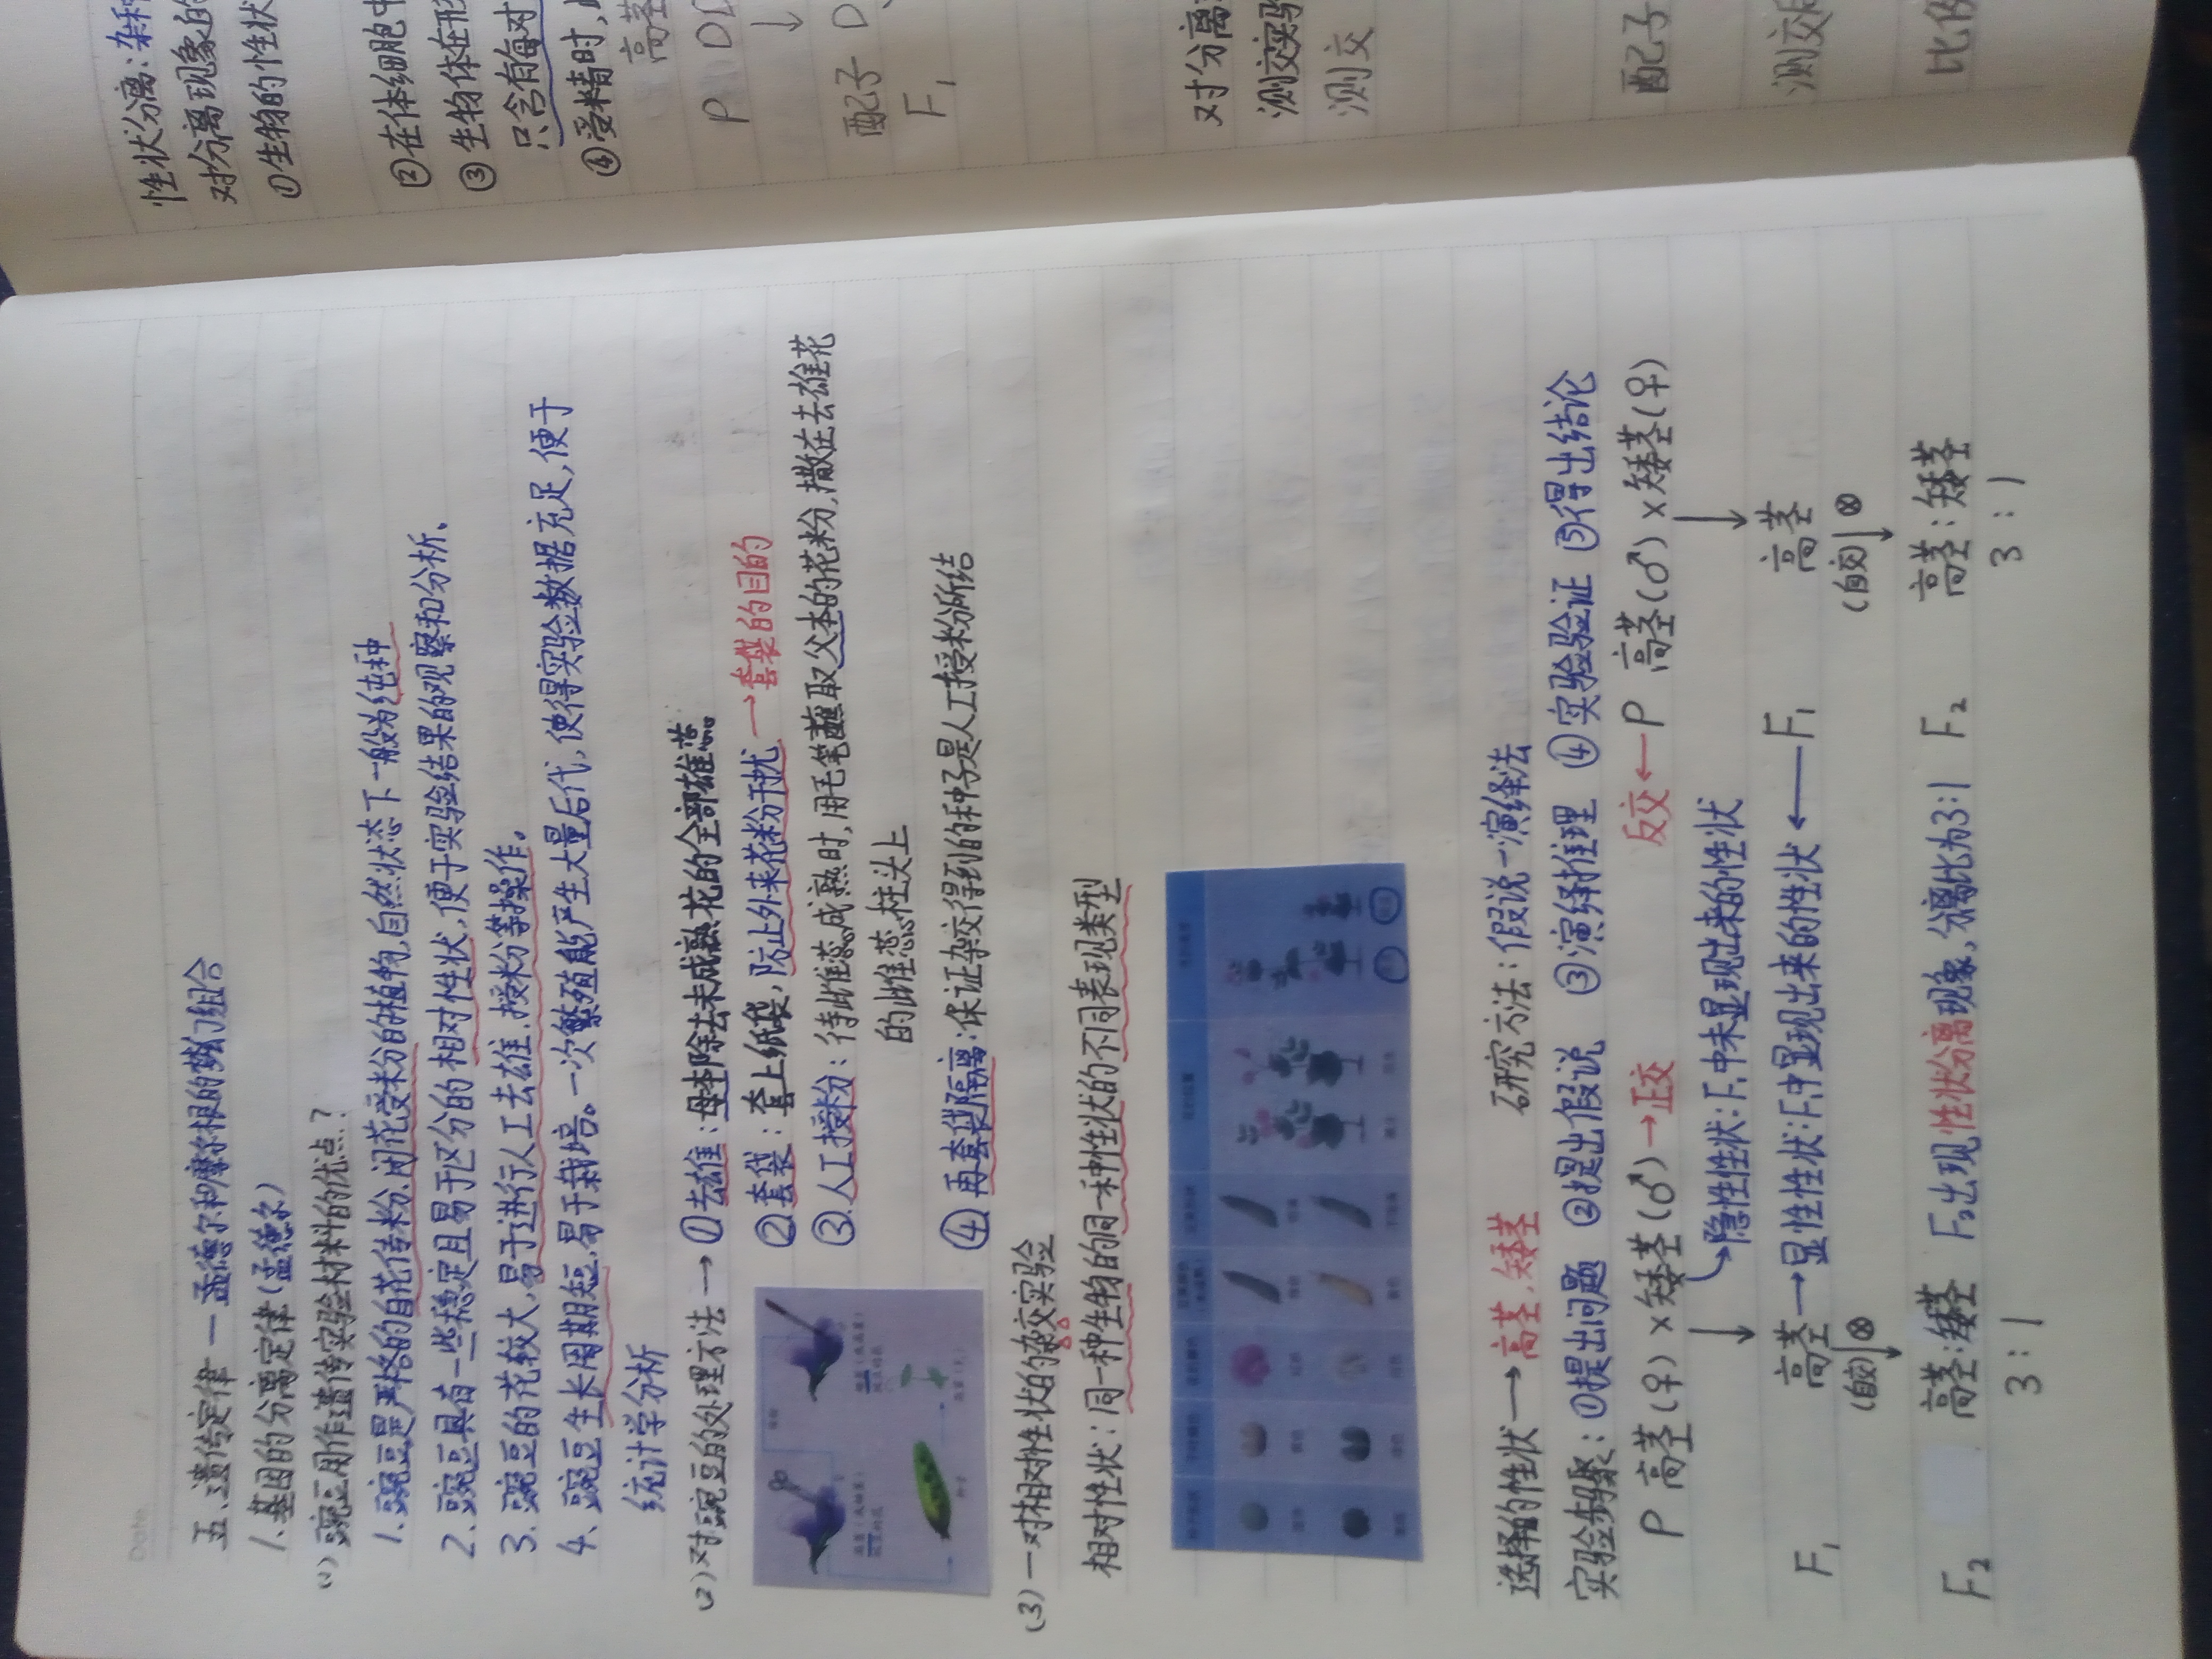 五.遗传定律 — 孟德尔和摩尔根的梦幻组合
1.基因的分离定律(孟德尔)
(1)豌豆用作遗传实验材料的优点?
1.豌豆是严格的自花传粉.闭花受粉的植物,自然状态下一般为纯种
2.豌豆具有一些稳定且易于区分的相对性状,便于实验结果的观察和分析.
3.豌豆的花较大,易于进行人工去雄.授粉等操作。
4.豌豆生长周期短,易于栽培。一次繁殖能产生大量后代,使得实验数据充足,便于
统计学分析
(2)对豌豆的处理方法→①去雄:母本除去未成熟花的全部雄蕊
②套袋:套上纸袋,防止外来花粉干扰→套袋的目的
③.人工授粉:待雌蕊成熟时,用毛笔蘸取父本的花粉,撒在去雄花
的雌蕊柱头上
④再套袋隔离:保证杂交得到的种子是人工授粉所结
(3)一对相对性状的杂交实验
相对性状:同一种生物的同一种性状的不同表现类型
选择的性状→高茎.矮茎 研究方法:假说—演绎法
实验步骤:①提出问题 ②提出假说 ③演绎推理 ④实验验证 ⑤得出结论
P 高茎(♀)×矮茎(♂)→正交 反交←P 高茎(♂)×矮茎(♀)
↓ 隐性性状:F₁中未显现出来的性状 ↓
F₁ 高茎→显性性状:F₁中显现出来的性状←F₁ 高茎
(自交)↓⊗ (自交)↓⊗
F₂ 高茎:矮茎 F₂出现性状分离现象,分离比为3:1 F₂ 高茎:矮茎
3 : 1 3 : 1
性状分离:杂种
对分离现象的
①生物的性状
②在体细胞中
③生物体在形
只含有每对
④受精时,
高茎
P DD
↓
配子 D
F₁
对分离
测交实验
测交
配子
测交
比例